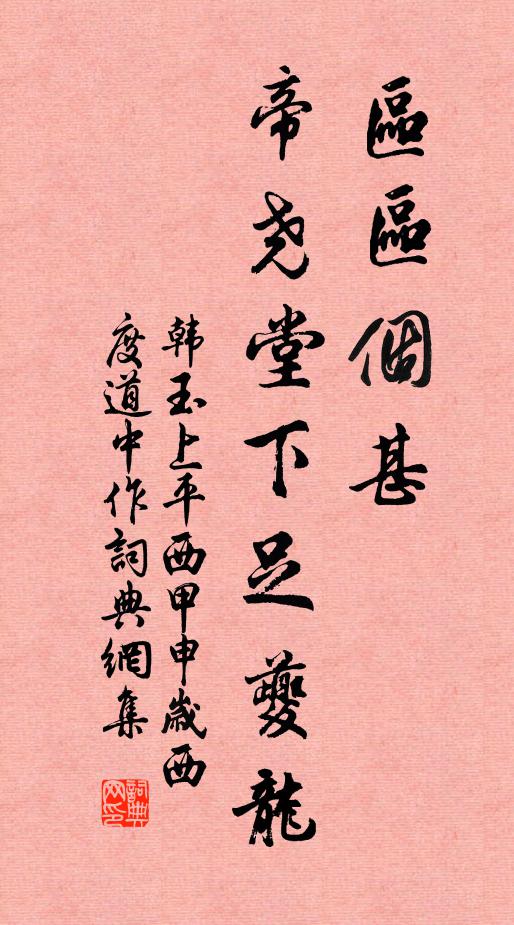 區區個甚
帝尧堂下足夔龍
韩玉上平西甲申歲西
度道中作詞典網集
詞典网印